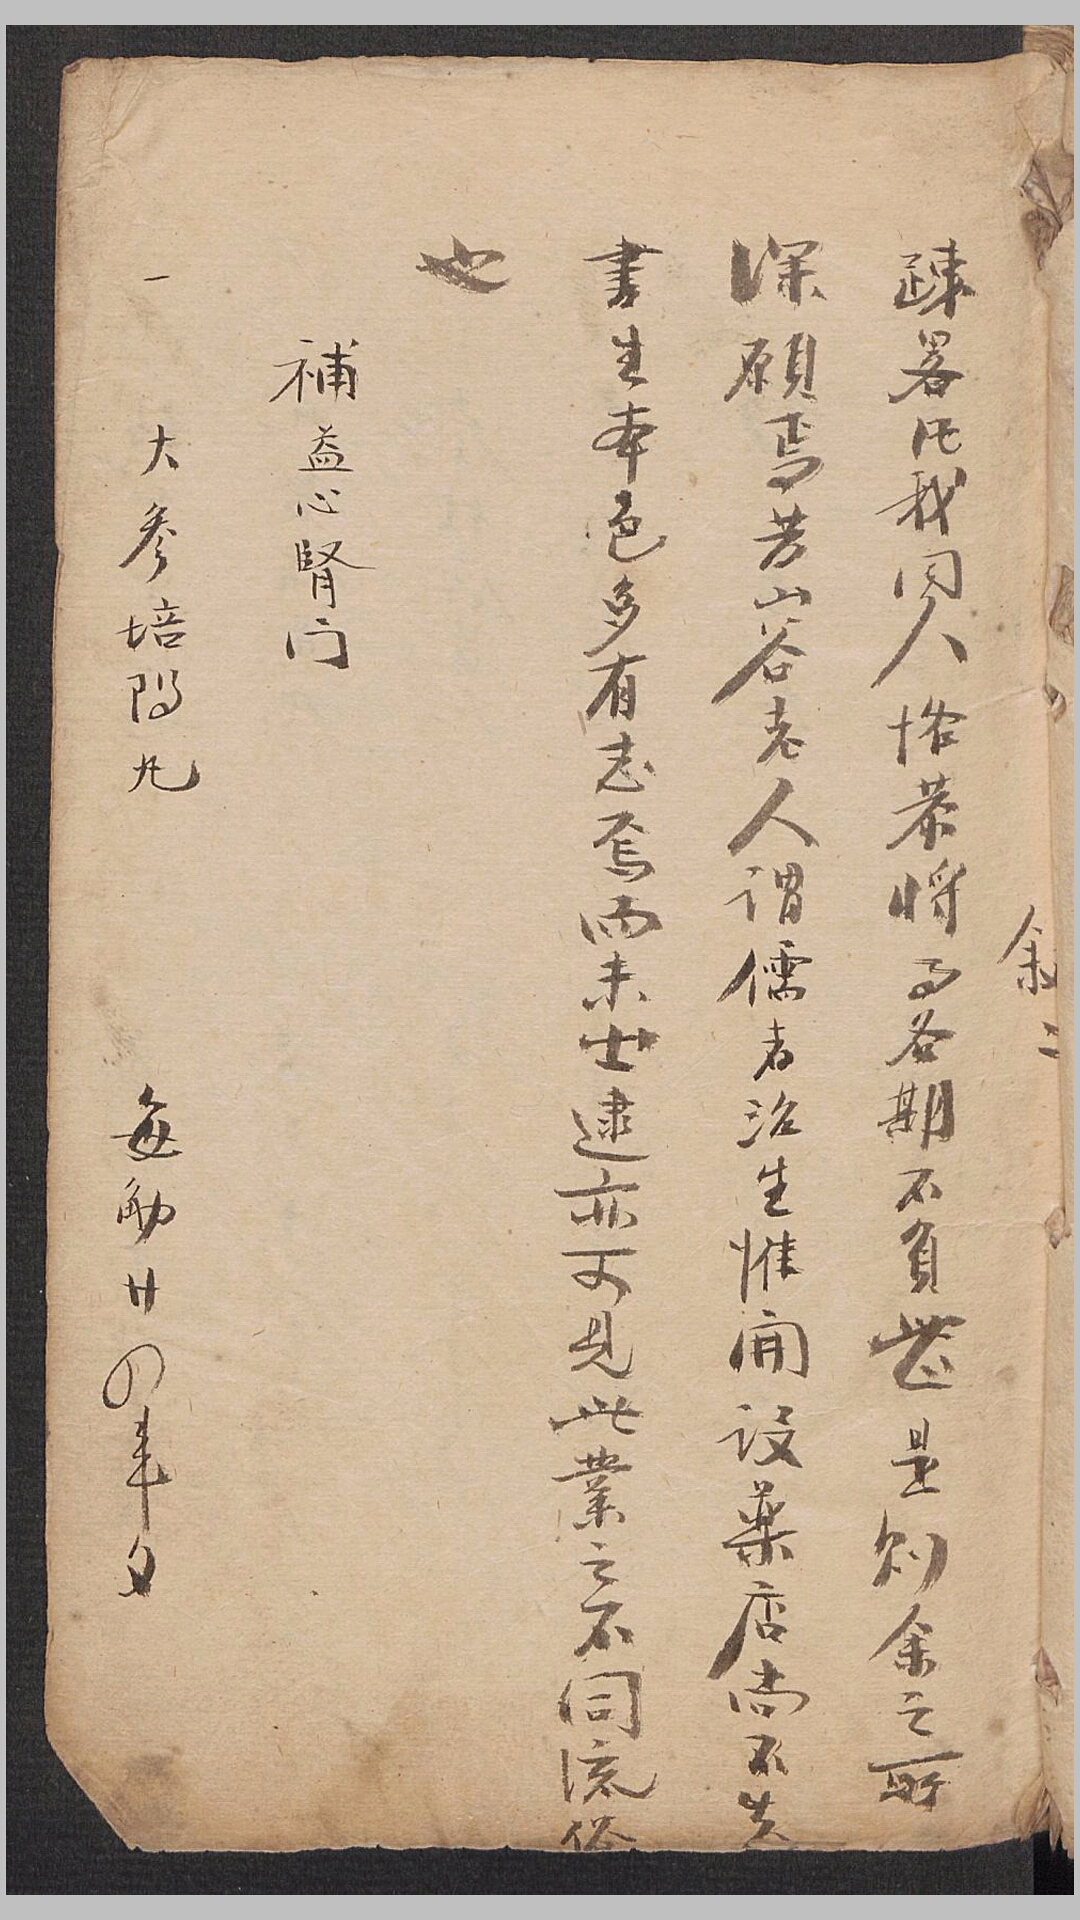 叙二
疎畧凡我同人恪恭將事各期不負是則余之所
深願焉若山谷老人謂儒者治生惟開設藥店尚不失
書生本色多有志焉而未逮亦可見此業之不同流俗
也
補益心腎門
一 大參培陽丸 每觔廿四